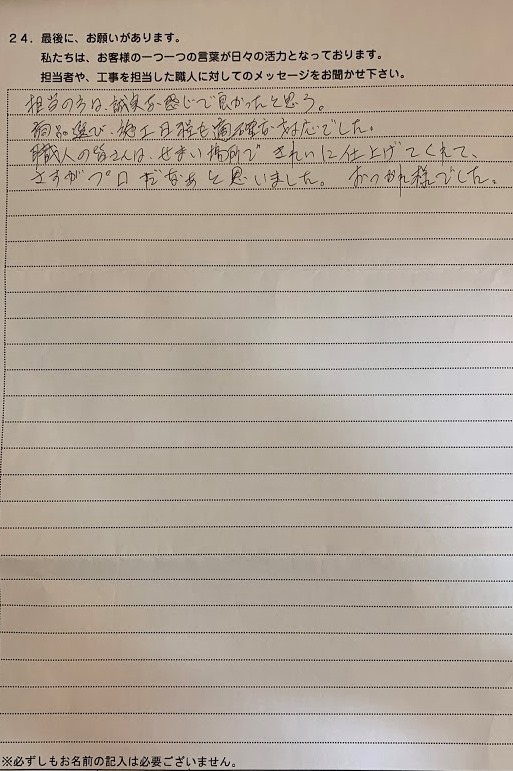 ２４．最後に、お願いがあります。
私たちは、お客様の一つ一つの言葉が日々の活力となっております。
担当者や、工事を担当した職人に対してのメッセージをお聞かせ下さい。
担当の方は、誠実な感じで良かったと思う。
商品選び、施工日程も適確な対応でした。
職人の皆さんは、せまい場所できれいに仕上げてくれて、
さすがプロだなぁと思いました。 おつかれ様でした。
※必ずしもお名前の記入は必要ございません。